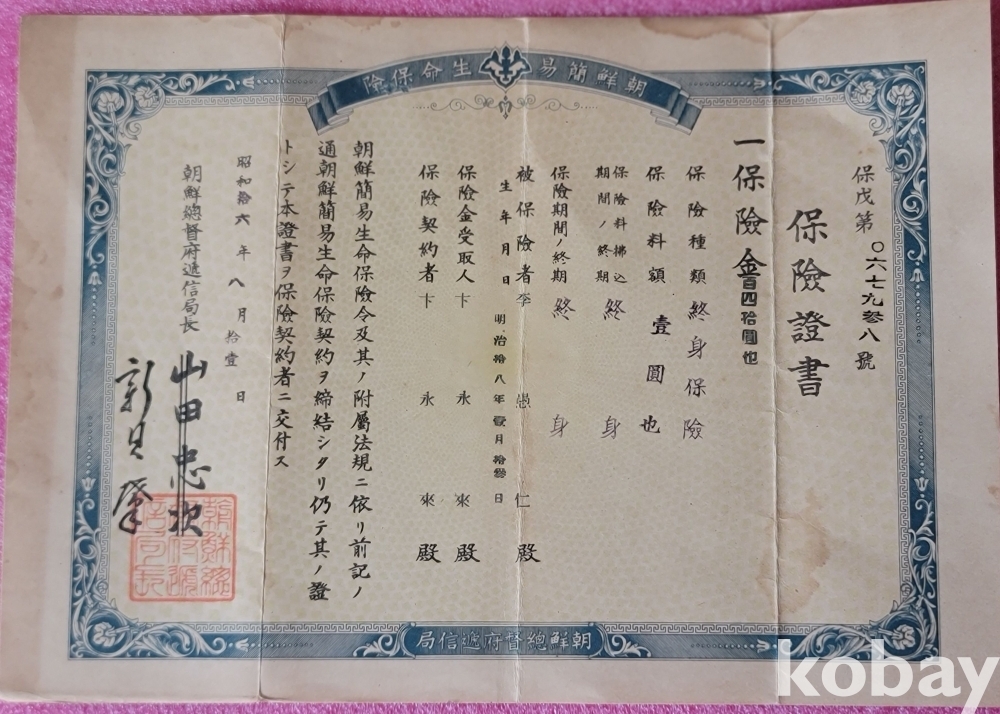 朝鮮簡易生命保険
保戊第〇六七九参八號
保險證書
一保險金百四拾圓也
保險種類 終身保險
保險料額 壹圓也
保險料拂込期間ノ終期 終身
保險期間ノ終期 終身
被保險者 李愚仁殿
生年月日 明治拾八年壹月拾參日
保險金受取人 卞永來殿
保險契約者 卞永來殿
朝鮮簡易生命保險令及其ノ附屬法規ニ依リ前記ノ
通朝鮮簡易生命保險契約ヲ締結シタリ仍テ其ノ證
トシテ本證書ヲ保險契約者ニ交付ス
昭和拾六年八月拾壹日
朝鮮總督府遞信局長 山田忠次
新貝肇
朝鮮總督府遞信局
kobay